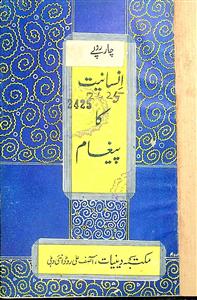 چار روپے
انسانیت
2425
کا
پیغام
مکتبہ دینیات، ۱۱ آصف علی روڈ، نئی دہلی